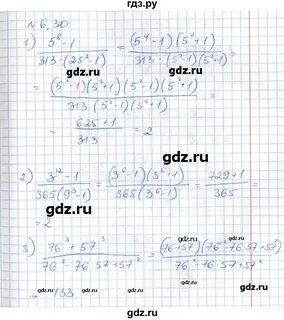 гдз.ру
№ 6,30
1) (5⁸-1)/(313·(25²-1)) = ((5⁴-1)(5⁴+1))/(313·(5²-1)(5²-1)) =
= ((5²-1)(5²+1)(5⁴+1))/(313(5²-1)(5²+1)) =
= (625+1)/313 = 2
2) (3¹²-1)/(365(9³-1)) = ((3⁶-1)(3⁶+1))/(365(3⁶-1)) = (729+1)/365 =
= 2
3) (76³+57³)/(76²-76·57+57²) = ((76+57)(76²-76·57+57²))/(76²-76·57+57²)
= 133
gdz.ru
gdz.ru
gdz.ru
gdz.ru
gdz.ru
gdz.ru
gdz.ru
gdz.ru